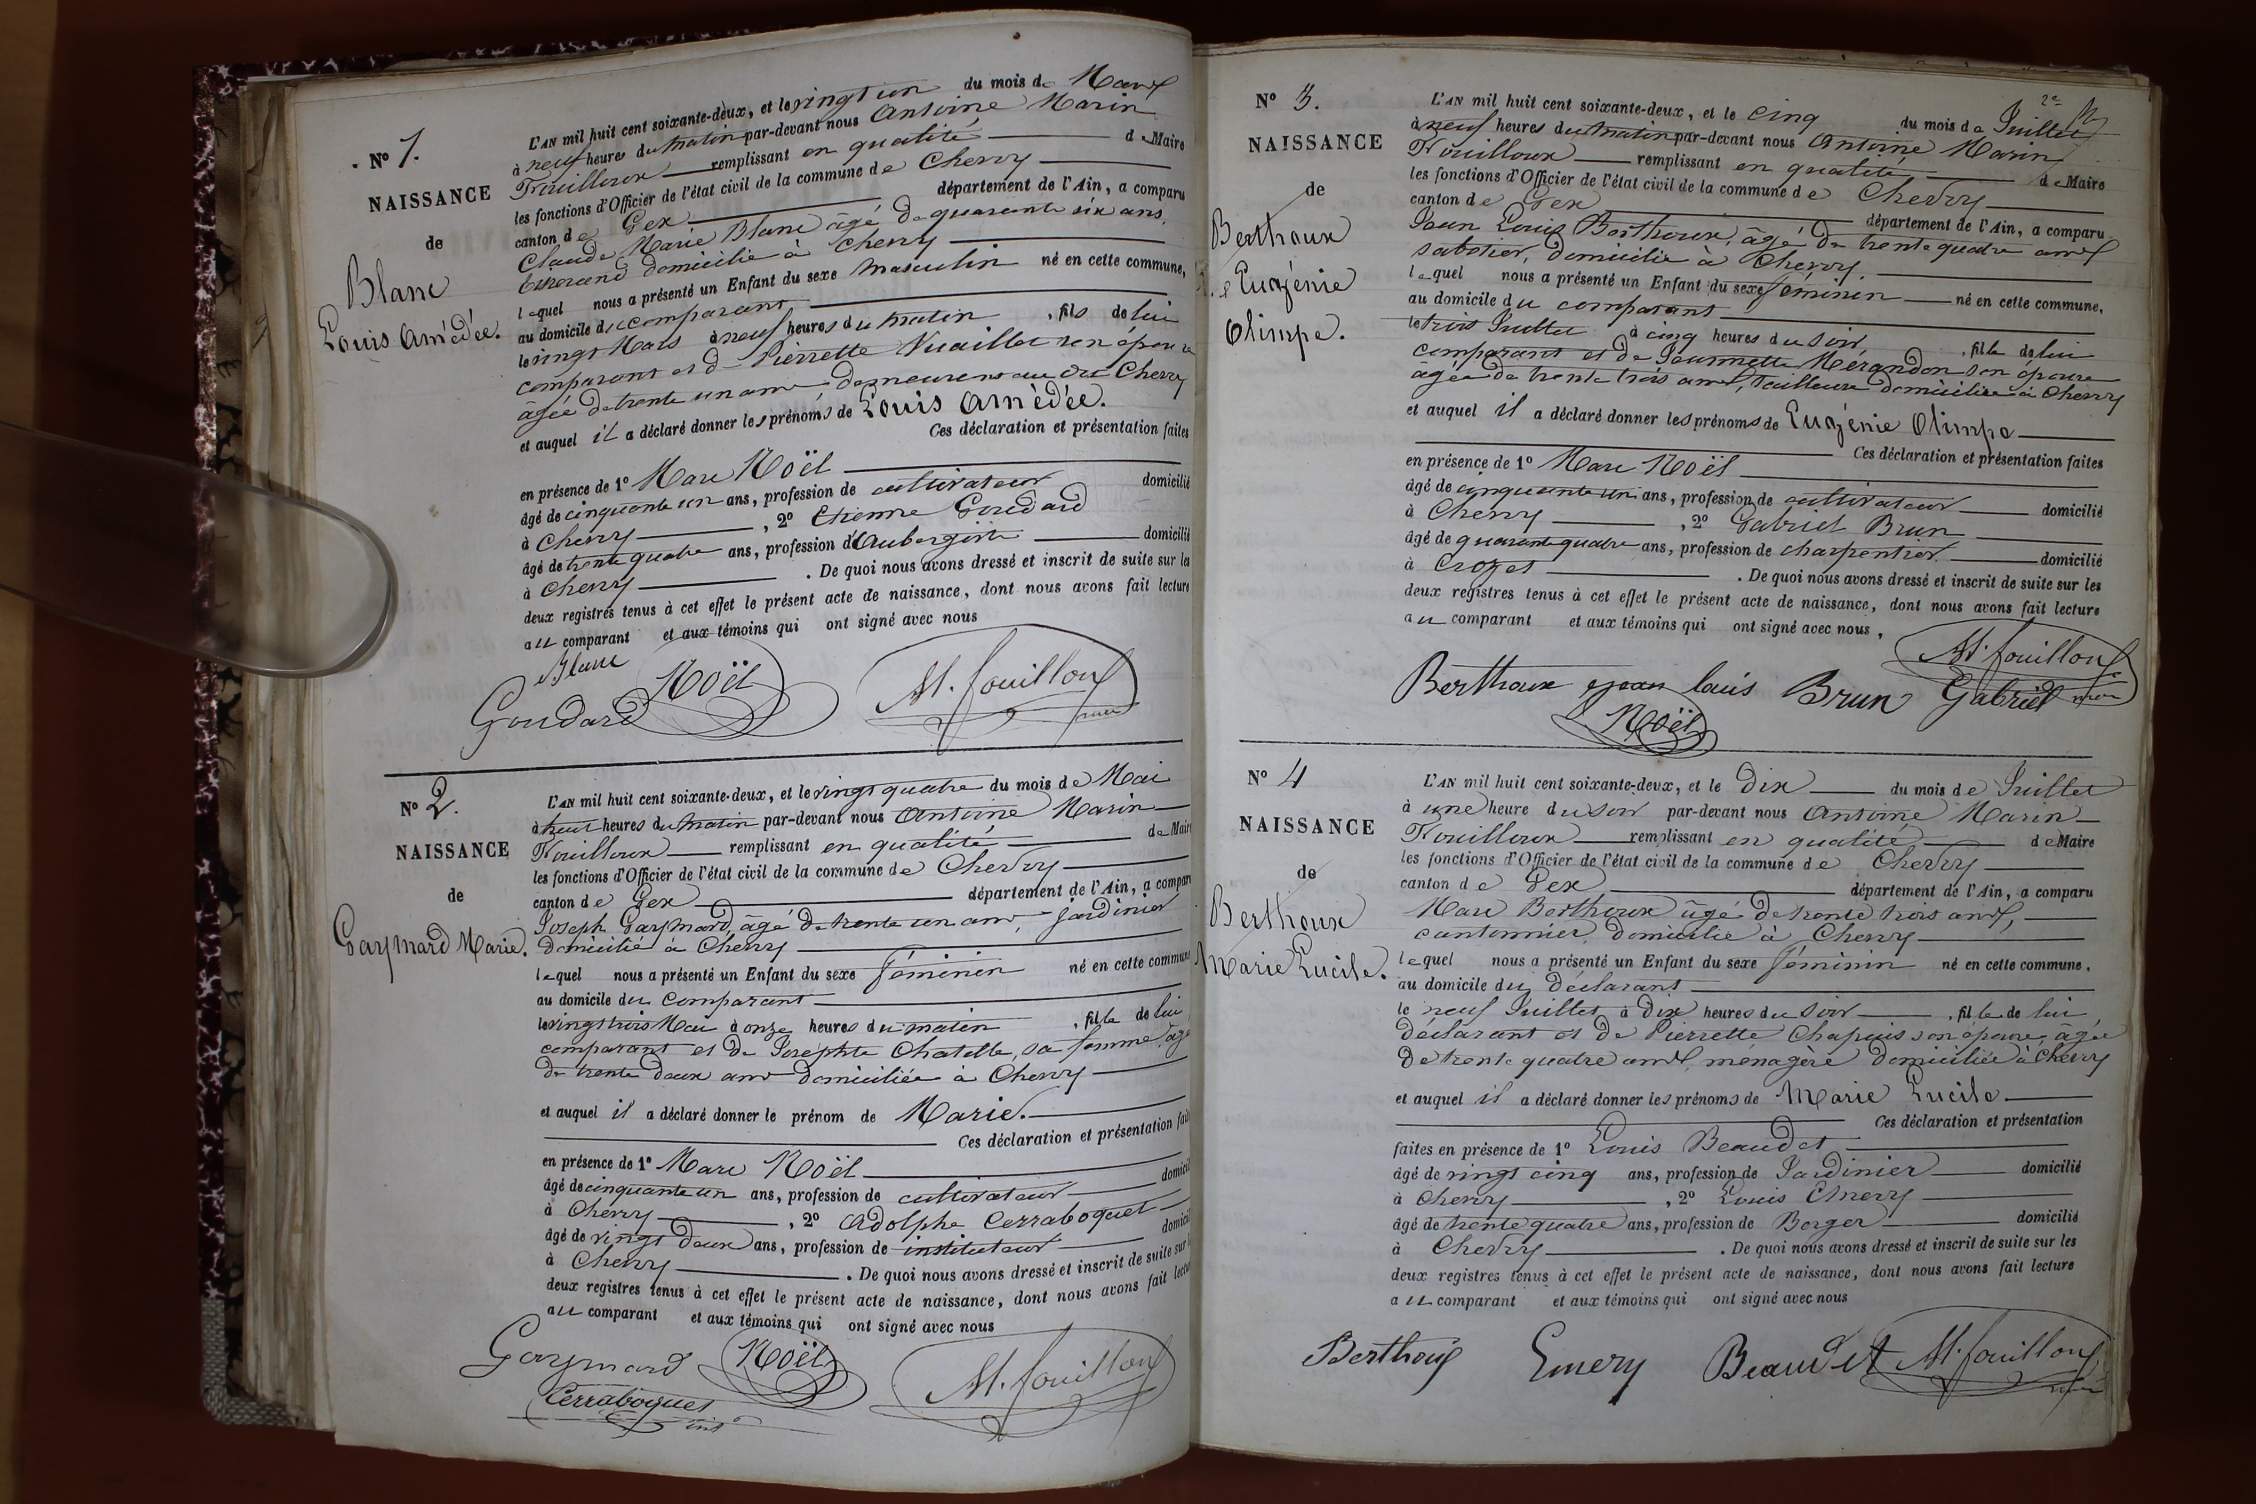 N° 1.
NAISSANCE
de
Blanc
Louis Amédée.
L'AN mil huit cent soixante-deux, et le vingt un du mois de Mars
à neuf heures du matin par-devant nous Antoine Marin
Fouilloux remplissant en qualité de Maire
les fonctions d'Officier de l'état civil de la commune de Chevry
canton de Gex département de l'Ain, a comparu
Claude Marie Blanc âgé de quarante six ans,
domicilié à Chevry
lequel nous a présenté un Enfant du sexe masculin né en cette commune,
au domicile du comparant
le vingt Mars à neuf heures du matin, fils de lui
comparant et de Pierrette Vuaillet son épouse
âgée de trente un ans demeurant au dit Chevry
et auquel il a déclaré donner les prénoms de Louis Amédée.
Ces déclaration et présentation faites
en présence de 1° Marc Noël
âgé de cinquante un ans, profession de cultivateur domicilié
à Chevry, 2° Etienne Goudard
âgé de trente quatre ans, profession d'Aubergiste domicilié
à Chevry. De quoi nous avons dressé et inscrit de suite sur les
deux registres tenus à cet effet le présent acte de naissance, dont nous avons fait lecture
au comparant et aux témoins qui ont signé avec nous
Blanc
Goudard Noël M. fouilloux
maire
N° 2.
NAISSANCE
de
Gaymard Marie.
L'AN mil huit cent soixante-deux, et le vingt quatre du mois de Mai
à huit heures du matin par-devant nous Antoine Marin
Fouilloux remplissant en qualité de Maire
les fonctions d'Officier de l'état civil de la commune de Chevry
canton de Gex département de l'Ain, a comparu
Joseph Gaymard, âgé de trente un ans, jardinier
domicilié à Chevry
lequel nous a présenté un Enfant du sexe féminin né en cette commune
au domicile du comparant
le vingt trois Mai à onze heures du matin, fille de lui
comparant et de Josephte Chatelle, sa femme âgée
de trente deux ans domiciliée à Chevry
et auquel il a déclaré donner le prénom de Marie.
Ces déclaration et présentation faites
en présence de 1° Marc Noël
âgé de cinquante un ans, profession de cultivateur domicilié
à Chevry, 2° Adolphe Cerraboquet
âgé de vingt deux ans, profession de instituteur domicilié
à Chevry. De quoi nous avons dressé et inscrit de suite sur les
deux registres tenus à cet effet le présent acte de naissance, dont nous avons fait lecture
au comparant et aux témoins qui ont signé avec nous
Gaymard Noël M. fouilloux
Cerraboquet
inst
2e
N° 3.
NAISSANCE
de
Berthoux
Eugénie
Olimpe.
L'AN mil huit cent soixante-deux, et le cinq du mois de Juillet
à neuf heures du matin par-devant nous Antoine Marin
Fouilloux remplissant en qualité de Maire
les fonctions d'Officier de l'état civil de la commune de Chevry
canton de Gex département de l'Ain, a comparu
Jean Louis Berthoux, âgé de trente quatre ans
sabotier, domicilié à Chevry.
lequel nous a présenté un Enfant du sexe féminin né en cette commune,
au domicile du comparant
le trois Juillet à cinq heures du soir, fille de lui
comparant et de Jeannette Mérandon son épouse
âgée de trente trois ans, tailleuse domiciliée à Chevry
et auquel il a déclaré donner les prénoms de Eugénie Olimpe
Ces déclaration et présentation faites
en présence de 1° Marc Noël
âgé de cinquante un ans, profession de cultivateur domicilié
à Chevry, 2° Gabriel Brun
âgé de quarante quatre ans, profession de charpentier domicilié
à Crozet. De quoi nous avons dressé et inscrit de suite sur les
deux registres tenus à cet effet le présent acte de naissance, dont nous avons fait lecture
au comparant et aux témoins qui ont signé avec nous,
M. fouilloux
Berthoux jean louis Brun Gabriel maire
Noël
N° 4
NAISSANCE
de
Berthoux
Marie Lucile.
L'AN mil huit cent soixante-deux, et le dix du mois de Juillet
à une heure du soir par-devant nous Antoine Marin
Fouilloux remplissant en qualité de Maire
les fonctions d'Officier de l'état civil de la commune de Chevry
canton de Gex département de l'Ain, a comparu
Marc Berthoux âgé de trente trois ans,
cantonnier, domicilié à Chevry
lequel nous a présenté un Enfant du sexe féminin né en cette commune,
au domicile du déclarant
le neuf Juillet à dix heures du soir, fille de lui
déclarant et de Pierrette Chapuis son épouse, âgée
de trente quatre ans, ménagère domiciliée à Chevry
et auquel il a déclaré donner les prénoms de Marie Lucile
Ces déclaration et présentation
faites en présence de 1° Louis Beaudet
âgé de vingt cinq ans, profession de Jardinier domicilié
à Chevry, 2° Louis Emery
âgé de trente quatre ans, profession de Berger domicilié
à Chevry. De quoi nous avons dressé et inscrit de suite sur les
deux registres tenus à cet effet le présent acte de naissance, dont nous avons fait lecture
au comparant et aux témoins qui ont signé avec nous
Berthoux Emery Beaudet M. fouilloux
maire